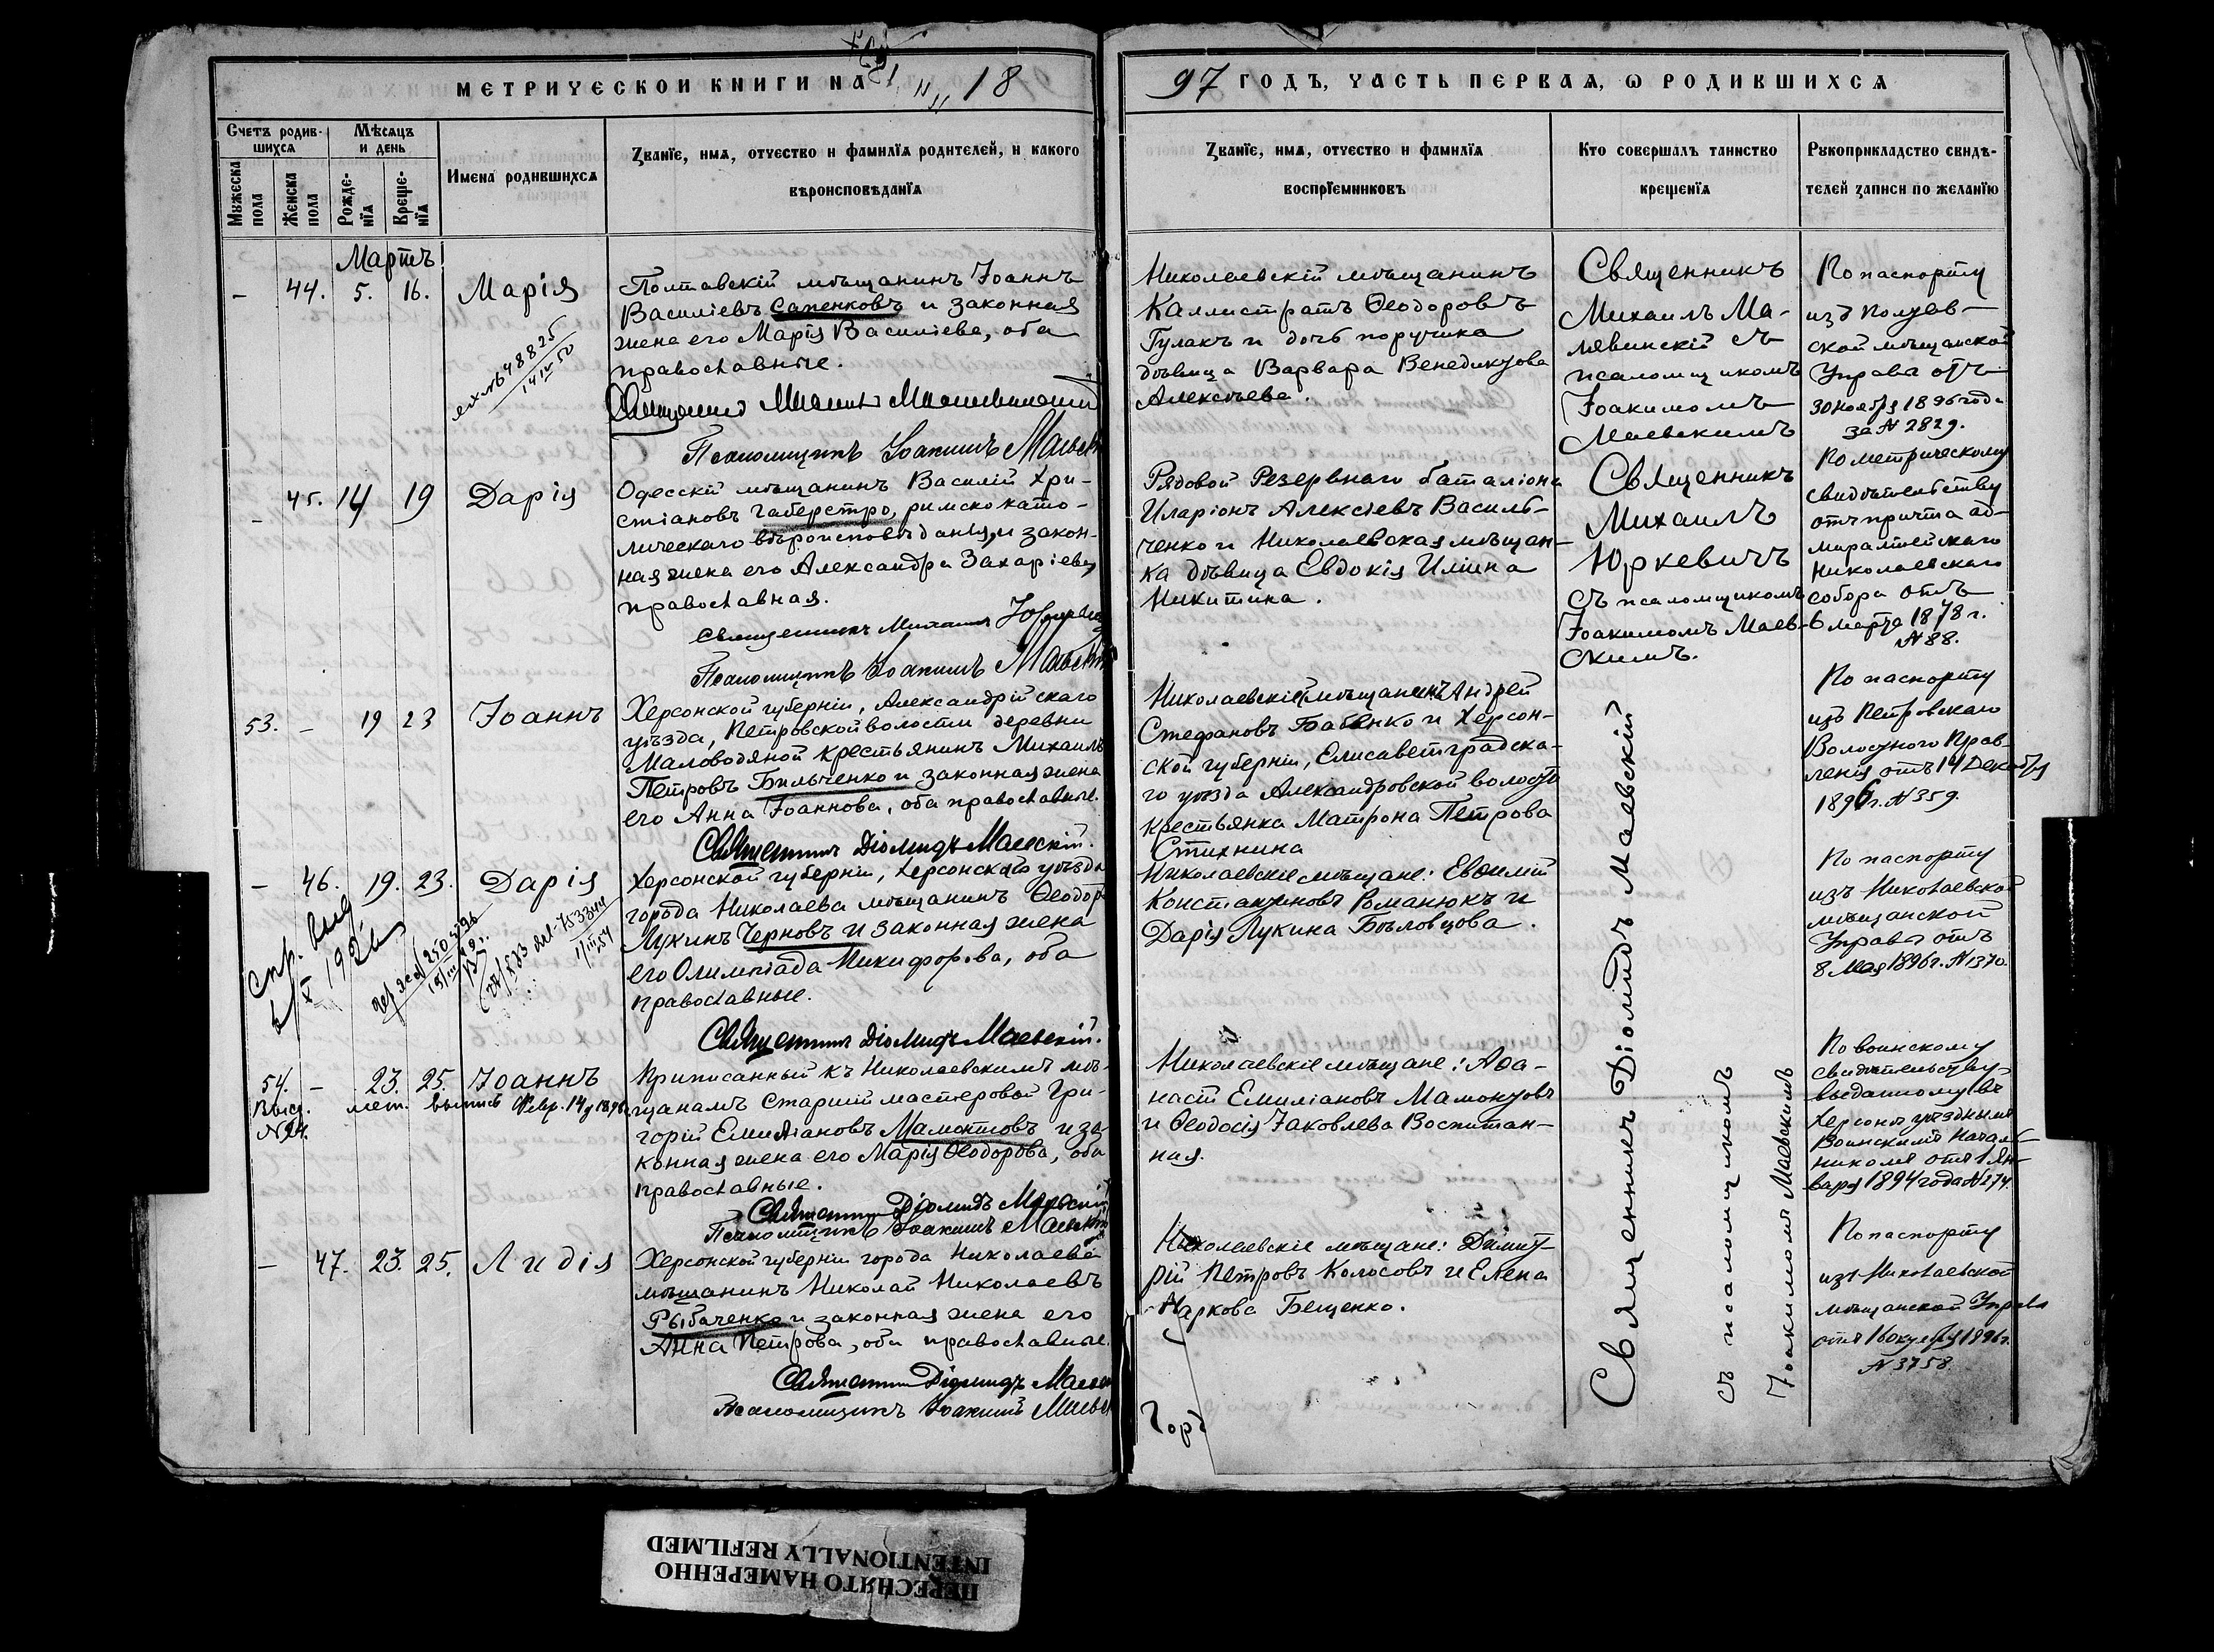 МЕТРИЧЕСКОИ КНИГИ NА 18
97 ГОДЪ, ЧАСТЬ ПЕРВАЯ, Ѡ РОДИВШИХСЯ
Счетъ родив-
шихся
Мѣсяцъ
и день
Мужеска
пола
Женска
пола
Рожде-
нїя
Креще-
нїя
Имена родившихся
Званїе, имя, отчество и фамилїя родителей, и какого
вѣроисповѣданїя
Званїе, имя, отчество и фамилїя
воспрїемниковъ
Кто совершалъ таинство
крещенїя
Рукоприкладство свидѣ-
телей записи по желанїю
Мартъ
– 44. 5. 16. Марія
Полтавскій мѣщанинъ Іоаннъ
Василіевъ Сапенковъ и законная
жена его Марія Василіева, оба
православные.
Псаломщикъ Іоакимъ
Николаевскій мѣщанинъ
Каллистратъ Ѳеодоровъ
Гулакъ и дочь поручика
дѣвица Варвара Венедиктова
Алексѣева.
Священникъ
Михаилъ Ма-
лявинскій съ
псаломщикомъ
Іоакимомъ
Маевскимъ
По паспорту
изъ Полтав-
ской мѣщанской
Управы отъ
30 ноября 1896 года
за № 2829.
– 45. 14 19 Дарія
Одесскій мѣщанинъ Василій Хри-
стіановъ Габерстро, римско като-
лическаго вѣроисповѣданія, и закон-
ная жена его Александра Захаріева,
православная.
Священникъ Михаилъ
Псаломщикъ Іоакимъ
Рядовой Резервнаго баталіона
Иларіонъ Алексіевъ Василь-
ченко и Николаевская мѣщан-
ка дѣвица Евдокія Иліина
Никитина.
Священникъ
Михаилъ
Юркевичъ
съ псаломщикомъ
Іоакимомъ Маев-
скимъ.
По метрическому
свидѣтельству
отъ причта ад-
миралтейскаго
Николаевскаго
собора отъ
6 марта 1878 г.
№ 88.
53. – 19 23 Іоаннъ
Херсонской губерніи, Александрійскаго
уѣзда, Петровской волости деревни
Маловодяной крестьянинъ Михаилъ
Петровъ Бильченко и законная жена
его Анна Іоаннова, оба православные.
Священникъ Діомидъ Маевскій.
Николаевскій мѣщанинъ Андрей
Стефановъ Бабенко и Херсон-
ской губерніи, Елисаветградска-
го уѣзда Александровской волости
крестьянка Матрона Петрова
Стихнина
По паспорту
изъ Петровскаго
Волостного Прав-
ленія отъ 14 Декабря
1896 г. № 359.
– 46. 19. 23. Дарія
Херсонской губерніи, Херсонскаго уѣзда
города Николаева мѣщанинъ Ѳеодоръ
Лукинъ Черновъ и законная жена
его Олимпіада Никифорова, оба
православные.
Священникъ Діомидъ Маевскій.
Николаевскіе мѣщане: Евѳимій
Константиновъ Романюкъ и
Дарія Лукина Бѣловцова.
По паспорту
изъ Николаевской
мѣщанской
Управы отъ
8 Мая 1896 г. № 1370.
54. – 23. 25. Іоаннъ
Приписанный къ Николаевскимъ мѣ-
щанамъ Старшій мастеровой Гри-
горій Емиліановъ Мамонтовъ и за-
конная жена его Марія Ѳеодорова, оба
православные.
Священникъ Діомидъ Маевскій
Псаломщикъ Іоакимъ Маевскій
Николаевскіе мѣщане: Аѳа-
насій Емиліановъ Мамонтовъ
и Ѳеодосія Іаковлева Воспитан-
ная.
По воинскому
свидѣтельству,
выданному въ
Херсонѣ уѣзднымъ
Воинскимъ Началь-
никомъ отъ 1 Ян-
варя 1894 года № 274.
– 47. 23. 25. Лидія
Херсонской губерніи города Николаева
мѣщанинъ Николай Николаевъ
Рыбаченко и законная жена его
Анна Петрова, оба православные.
Священникъ Діомидъ
Псаломщикъ Іоакимъ
Николаевскіе мѣщане: Димит-
рій Петровъ Колосовъ и Елена
Маркова Бещенко.
По паспорту
изъ Николаевской
мѣщанской Управы
отъ 16 октября 1896 г.
№ 3758.
Священникъ Діомидъ Маевскій
съ псаломщикомъ
Іоакимомъ Маевскимъ
ПЕРЕСНЯТО НАМЕРЕННО
INTENTIONALLY REFILMED